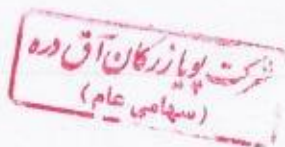 شرکت پویا زرکان آق دره
(سهامی عام)